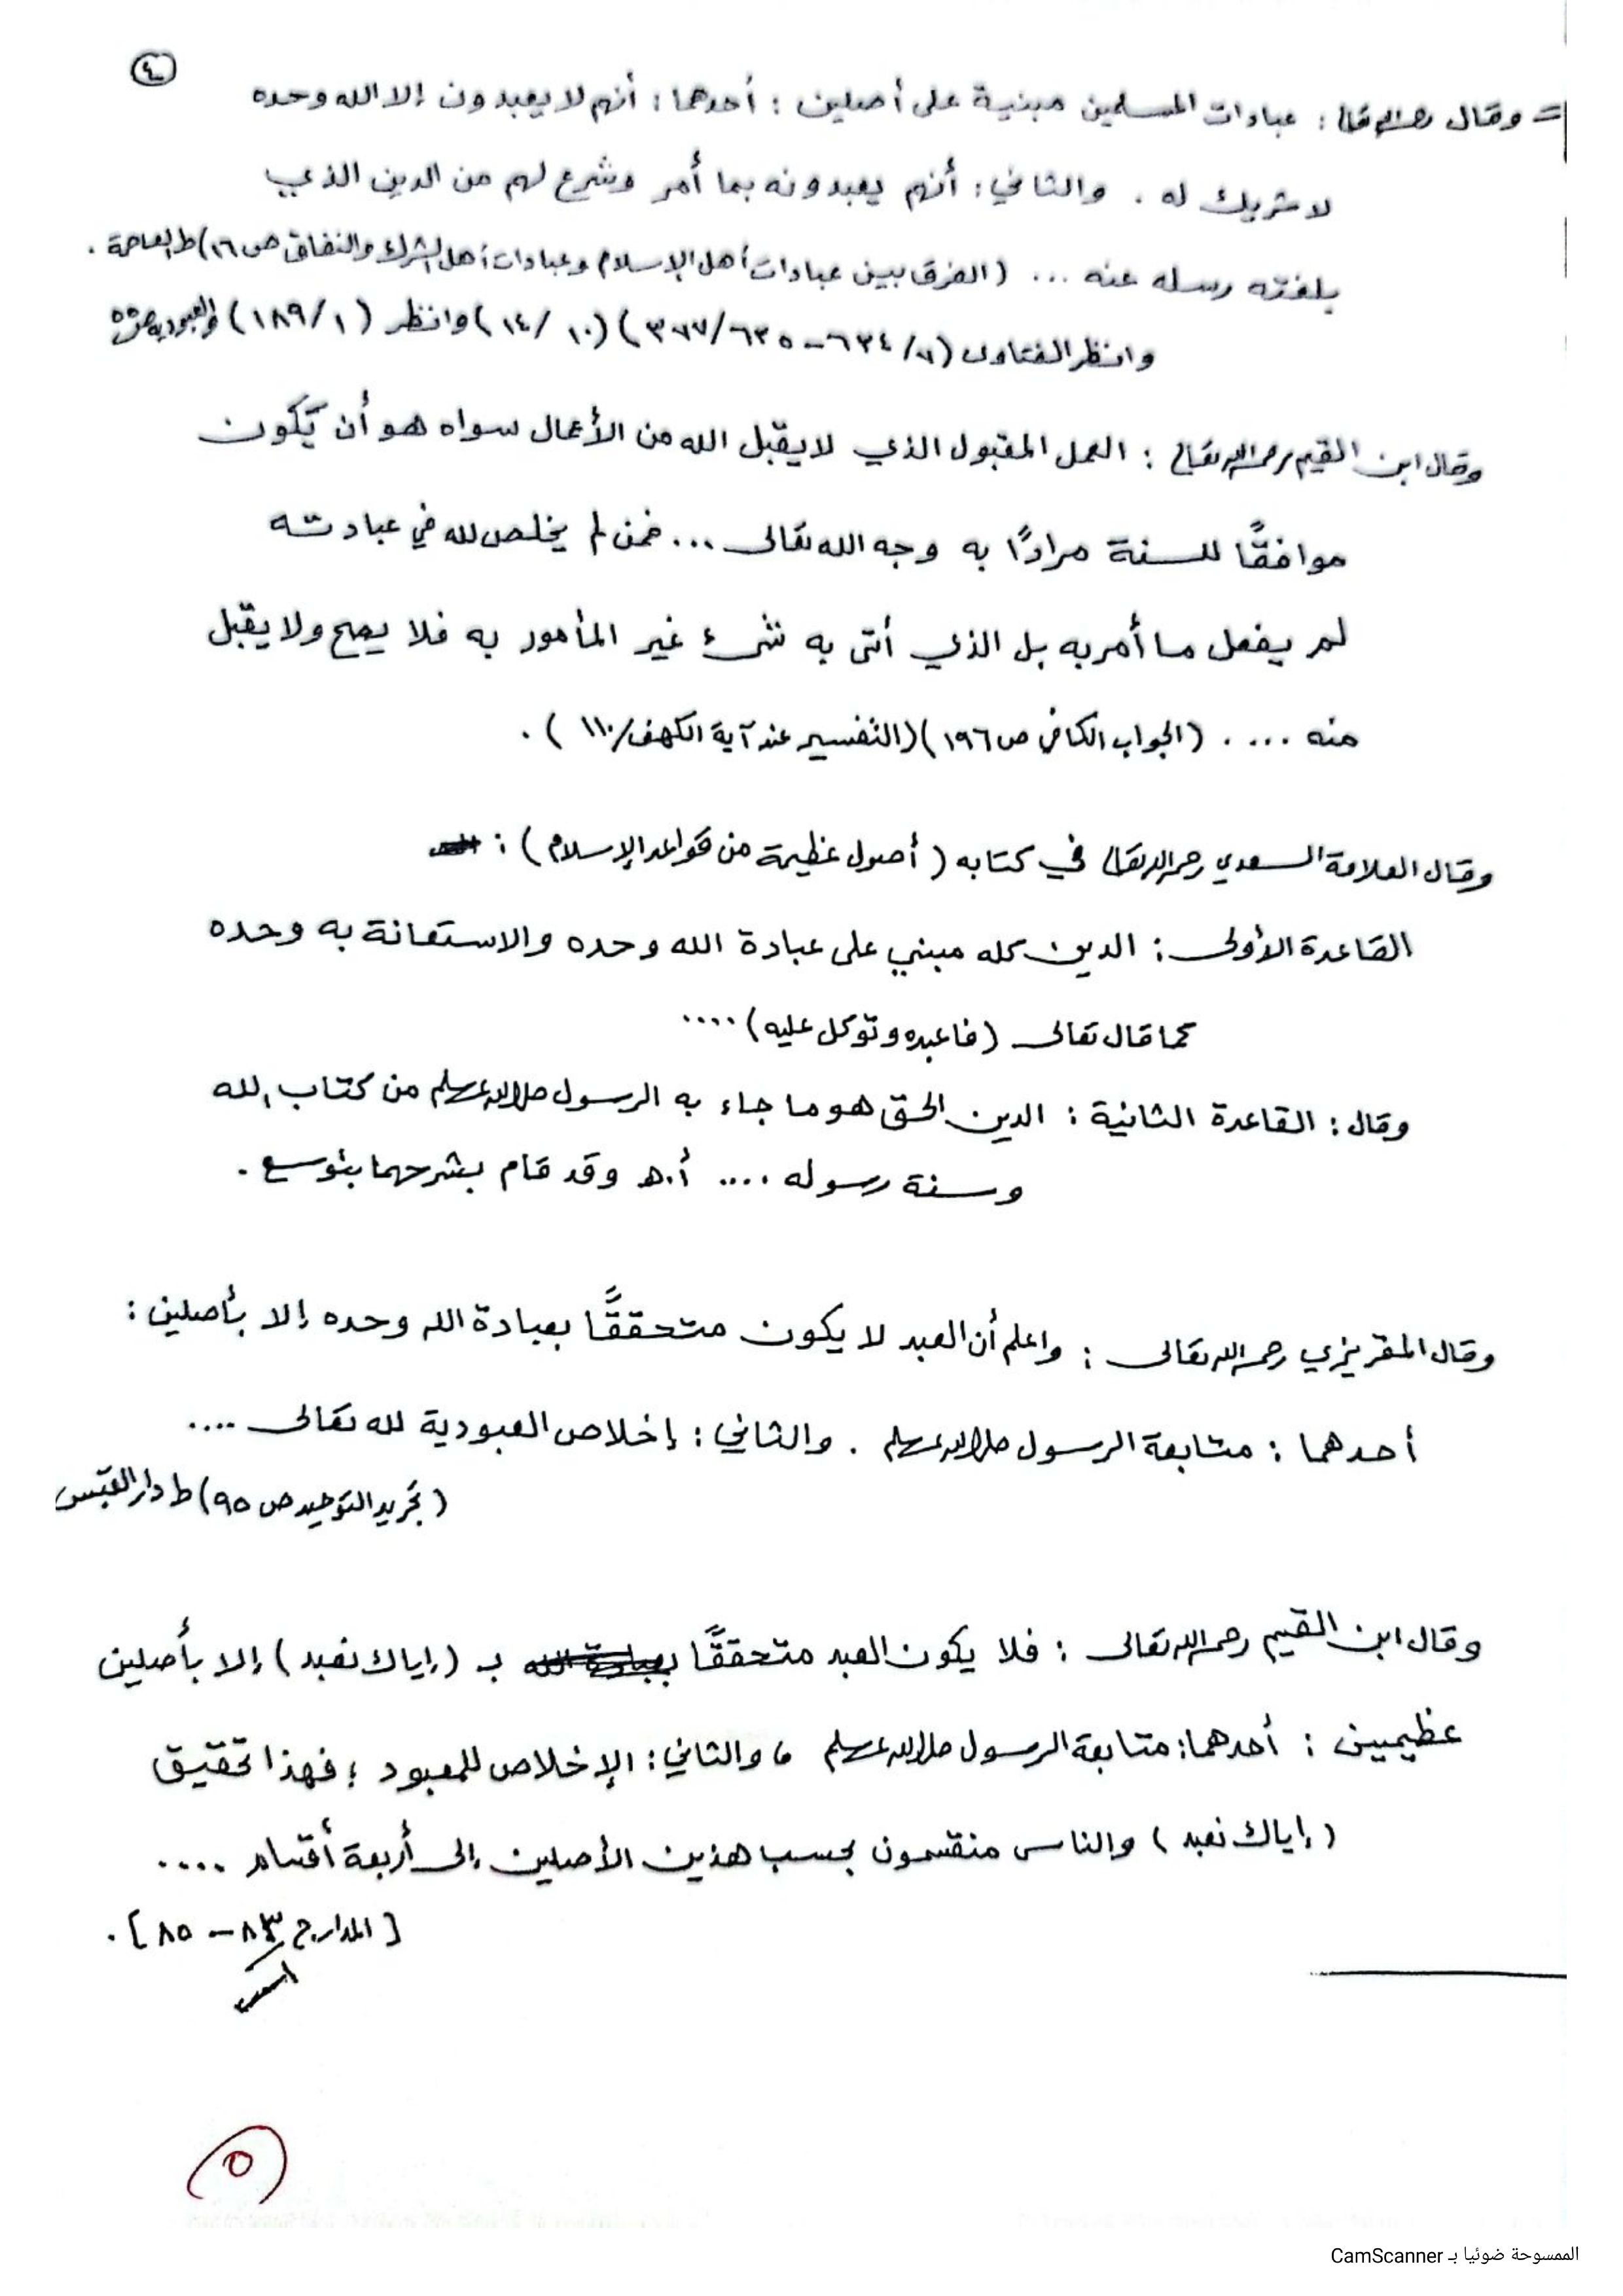 ٤
= وقال رحمه الله تعالى : عبادات المسلمين مبنية على أصلين : أحدهما : أنهم لا يعبدون إلا الله وحده
لا شريك له . والثاني : أنهم يعبدونه بما أمر وشرع لهم من الدين الذي
بلغته رسله عنه ... (الفرق بين عبادات أهل الإسلام وعبادات أهل الشرك والنفاق ص ١٦) ط العاصمة .
وانظر الفتاوى (٧/ ٦٣٤ – ٦٣٥ / ٣٧٧) (١٠ / ١٤) وانظر (١ / ١٨٩) والعبودية ص
وقال ابن القيم رحمه الله تعالى : العمل المقبول الذي لا يقبل الله من الأعمال سواه هو أن يكون
موافقًا للسنة مرادًا به وجه الله تعالى ... فمن لم يخلص لله في عبادته
لم يفعل ما أمر به بل الذي أتى به شيء غير المأمور به فلا يصح ولا يقبل
منه .... (الجواب الكافي ص ١٩٦) (التفسير عند آية الكهف / ١١٠) .
وقال العلامة السعدي رحمه الله تعالى في كتابه (أصول عظيمة من قواعد الإسلام) :
القاعدة الأولى : الدين كله مبني على عبادة الله وحده والاستعانة به وحده
كما قال تعالى (فاعبده وتوكل عليه) ....
وقال : القاعدة الثانية : الدين الحق هو ما جاء به الرسول صلى الله عليه وسلم من كتاب الله
وسنة رسوله .... أ.هـ وقد قام بشرحهما بتوسع .
وقال المقريزي رحمه الله تعالى : واعلم أن العبد لا يكون متحققًا بعبادة الله وحده إلا بأصلين :
أحدهما : متابعة الرسول صلى الله عليه وسلم . والثاني : إخلاص العبودية لله تعالى ....
(تجريد التوحيد ص ٩٥) ط دار القبس
وقال ابن القيم رحمه الله تعالى : فلا يكون العبد متحققًا بعبادة الله بـ (إياك نعبد) إلا بأصلين
عظيمين : أحدهما : متابعة الرسول صلى الله عليه وسلم ، والثاني : الإخلاص للمعبود ؛ فهذا تحقيق
(إياك نعبد) والناس منقسمون بحسب هذين الأصلين إلى أربعة أقسام ....
[المدارج ٨٣ – ٨٥] .
٥
الممسوحة ضوئيا بـ CamScanner